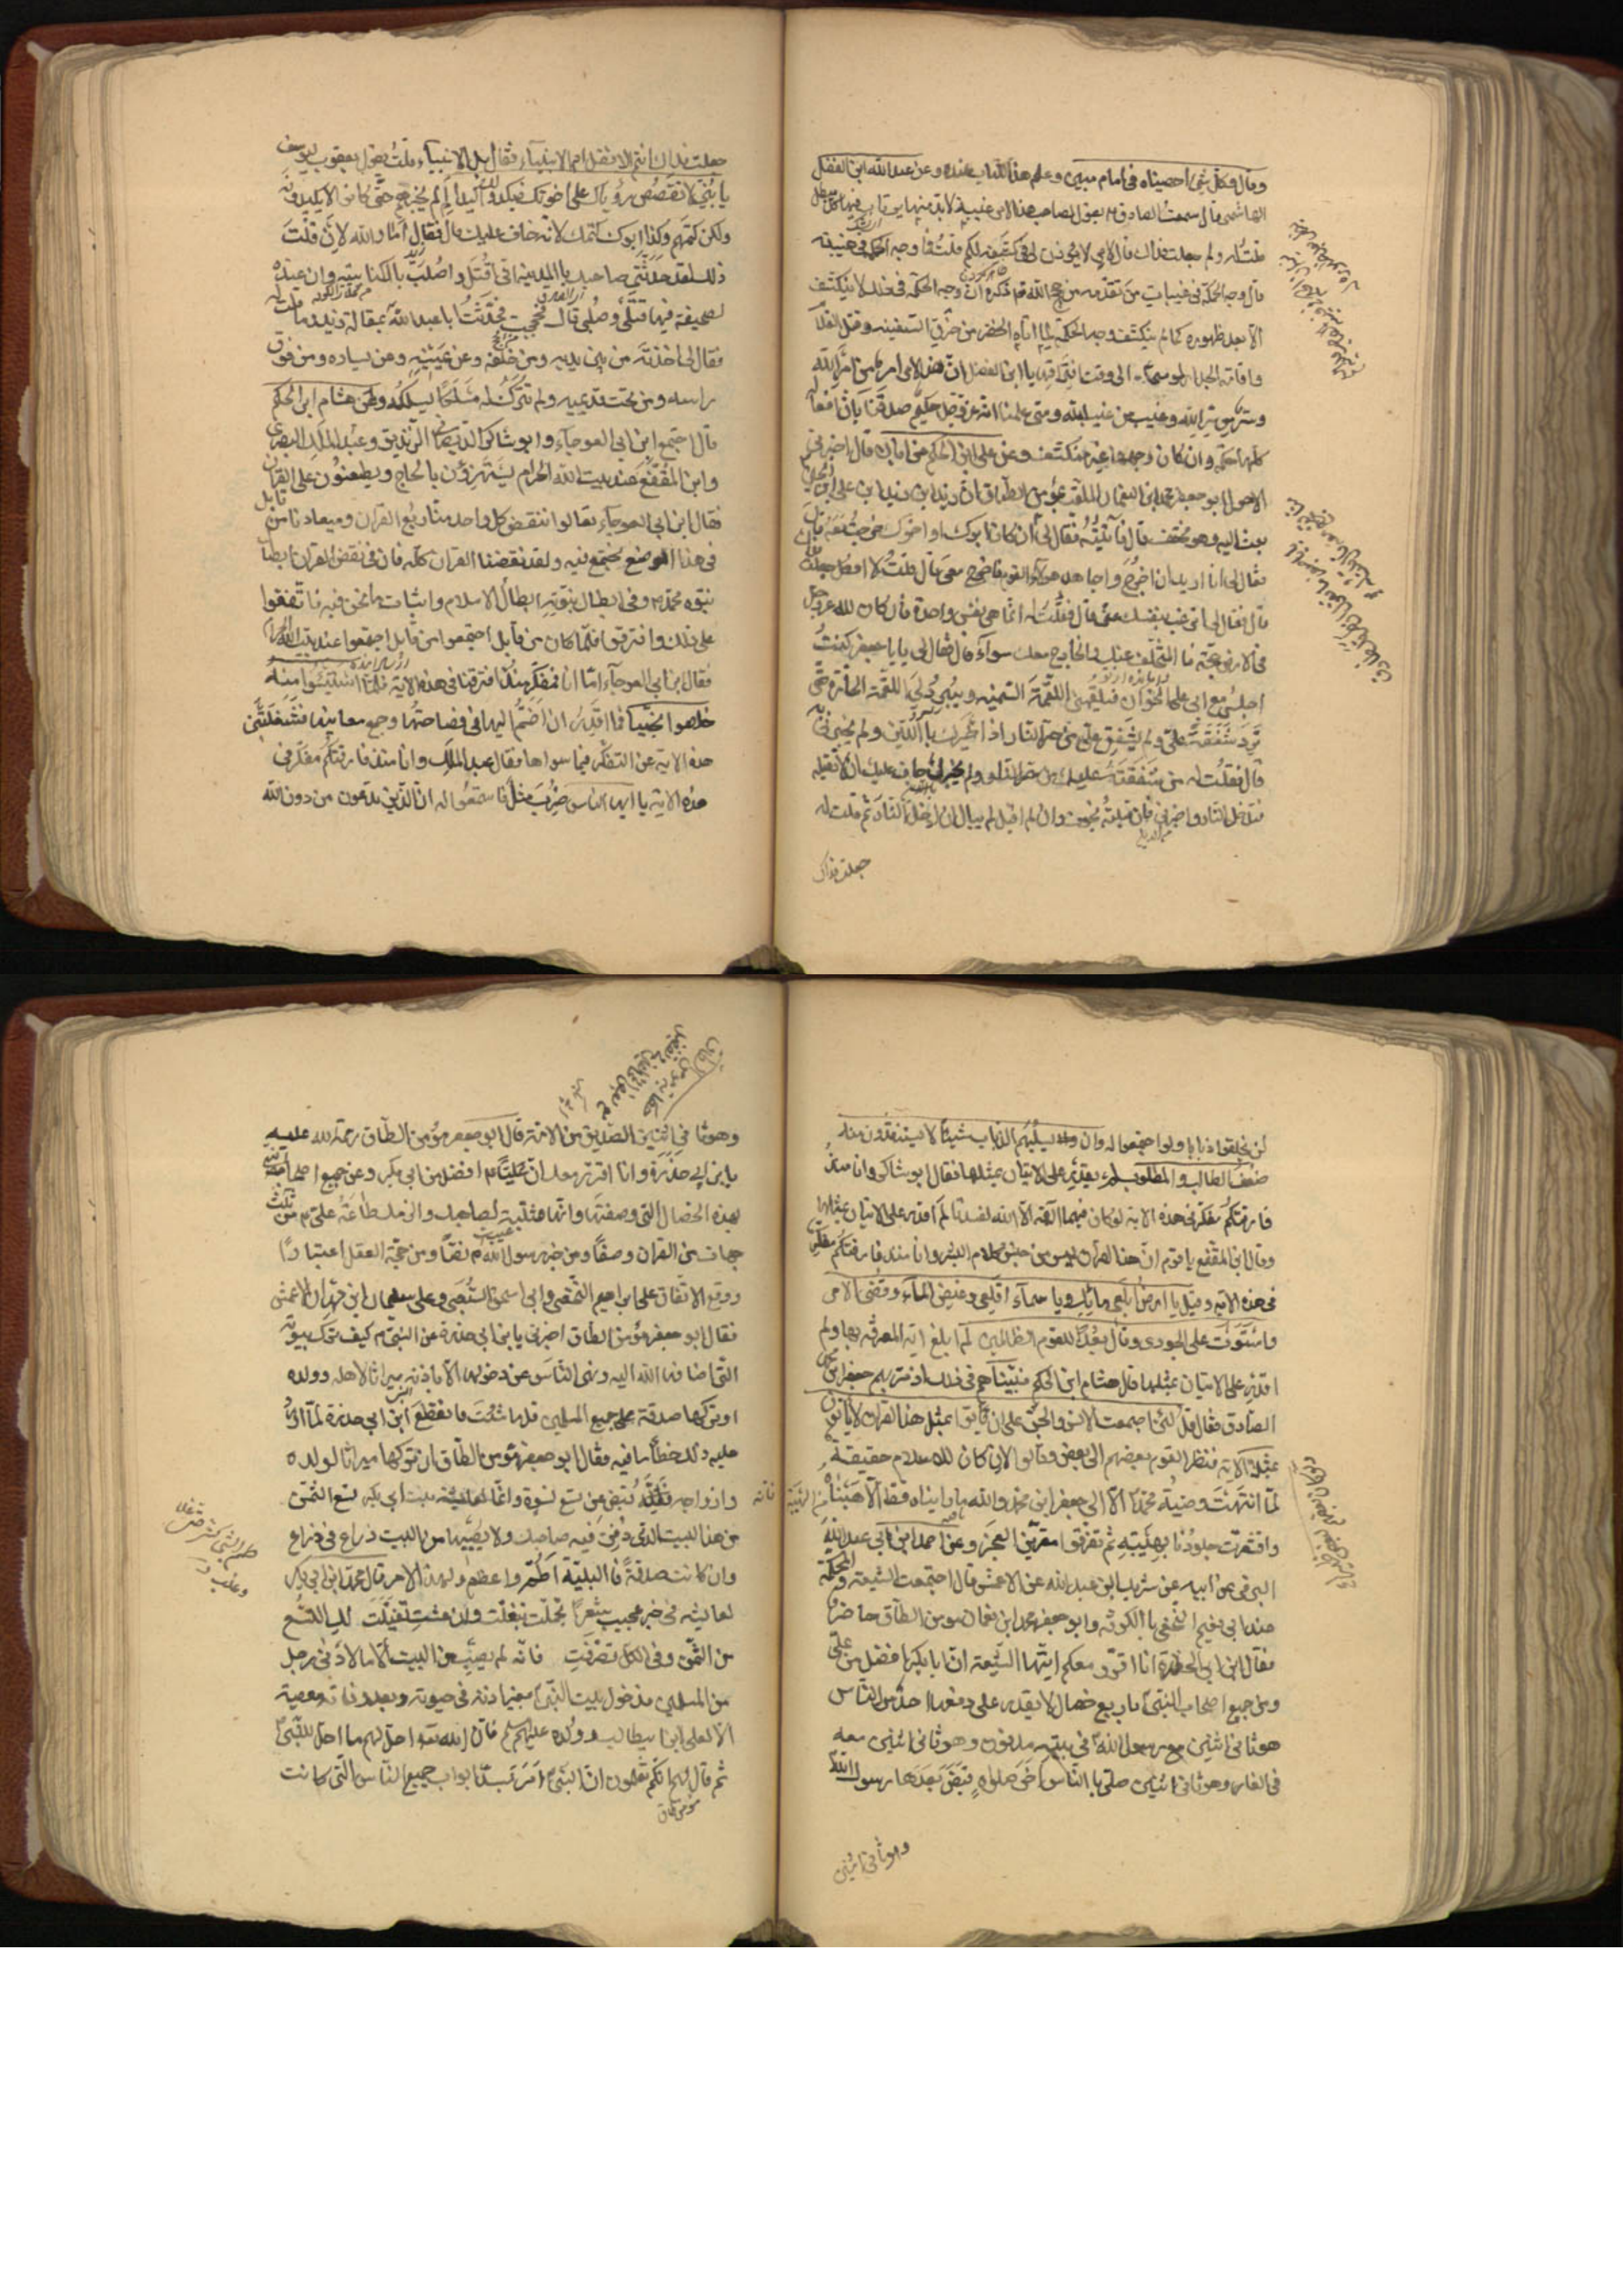 وقال وكل شئ احصيناه في امام مبين وعلم هذا الكتاب عنده وعن عبد الله ابن الفضل
الهاشمي قال سمعت الصادق يقول لصاحب هذا الامر غيبة لابد منها يرتاب فيها كل مبطل
فقلت له ولم جعلت فداك قال لامر لا يؤذن لي في كشفه لكم قلت فما وجه الحكمة في غيبته
قال وجه الحكمة في غيبات من تقدمه من حجج الله تم ذكره ان وجه الحكمة في ذلك لا ينكشف
الا بعد ظهوره كما لم ينكشف وجه الحكمة لما اتاه الخضر من خرق السفينه وقتل الغلام
واقامة الجدار لموسى الى وقت افتراقهما يا ابن الفضل ان هذا الامر امر من امر الله
وسر من سر الله وغيب من غيب الله ومتى علمنا انه عز وجل حكيم صدقنا بان افعاله
كلها حكمة وان كان وجهها غير منكشف وعن علي ابن الحكم عن ابان قال اخبرني
الاحول ابو جعفر محمد ابن النعمان الملقب بمؤمن الطاق ان زيد ابن علي ابن الحسين
بعث اليه وهو مختف قال فاتيته فقال لي
فقال لي انا اريد ان اخرج واجاهد هؤلاء القوم فاخرج معي قال قلت لا افعل جعلت
قال فقال لي اترغب بنفسك عني قال فقلت له انما هي نفس واحدة فان كان لله عز وجل
في الارض حجة فالمتخلف عنك والخارج معك سواء قال فقال لي يا ابا جعفر كنت
اجلس مع ابي على الخوان فيلقمني اللقمة السمينه ويبرد لي اللقمة الحارة حتى
تبرد شفقة علي ولم يشفق علي من حر النار اذ اخبرك بالدين ولم يخبرني به
قال فقلت له من شفقته عليك من حر النار لم يخبرك خاف عليك ان لا تقبله
فتدخل النار واخبرني فان قبلته نجوت وان لم اقبل لم يبال ان ادخل النار ثم قلت له
جعلت فداك
جعلت فداك انتم الافضل ام الانبياء فقال بل الانبياء قلت يقول يعقوب ليوسف
يا بني لا تقصص رؤياك على اخوتك فيكيدوا لك كيدا لم لم يخبرهم حتى كانوا لا يكيدونه
ولكن كتمهم وكذا ابوك كتمك لانه خاف عليك قال فقال اما والله لان قلت
ذلك لقد حدثني صاحبك بالمدينة اني اقتل واصلب بالكناسة وان عنده
لصحيفة فيها قتلي وصلبي قال فحججت فحدثت ابا عبد الله بمقالة زيد وما قلت له
فقال لي اخذته من بين يديه ومن خلفه وعن يمينه وعن يساره ومن فوق
راسه ومن تحت قدميه ولم تترك له مسلكا يسلكه وعن هشام ابن الحكم
قال اجتمع ابن ابي العوجاء وابو شاكر الديصاني الزنديق وعبد الملك البصري
وابن المقفع عند بيت الله الحرام يستهزؤن بالحاج ويطعنون على القران
فقال ابن ابي العوجاء تعالوا ننقض كل واحد منا ربع القران وميعادنا من قابل
في هذا الموضع نجتمع فيه ولقد نقضنا القران كله فان في نقض القران ابطال
نبوة محمد وفي ابطال نبوته ابطال الاسلام واثبات ما نحن فيه فاتفقوا
على ذلك وافترقوا فلما كان من قابل اجتمعوا عند بيت الله
فقال ابن ابي العوجاء اما انا فمفكر منذ افترقنا في هذه الاية فلما استيئسوا منه
خلصوا نجيا فما اقدر ان اضم اليها في فصاحتها وجمع معانيها فشغلتني
هذه الاية عن التفكر فيما سواها فقال عبد الملك وانا منذ فارقتكم مفكر في
هذه الاية يا ايها الناس ضرب مثل فاستمعوا له ان الذين تدعون من دون الله
لن يخلقوا ذبابا ولو اجتمعوا له وان يسلبهم الذباب شيئا لا يستنقذوه منه
ضعف الطالب والمطلوب لم يقدر على الاتيان بمثلها فقال ابو شاكر وانا منذ
فارقتكم مفكر في هذه الاية لو كان فيهما الهة الا الله لفسدتا لم اقدر على الاتيان بمثلها
وقال ابن المقفع يا قوم ان هذا القران ليس من جنس كلام البشر وانا منذ فارقتكم مفكر
في هذه الاية وقيل يا ارض ابلعي مائك ويا سماء اقلعي وغيض الماء وقضي الامر
واستوت على الجودي وقال بعدا للقوم الظالمين لم ابلغ اية المعرفة بها ولم
اقدر على الاتيان بمثلها قال هشام ابن الحكم فبينما هم في ذلك اذ مر بهم جعفر ابن محمد
الصادق فقال قل لئن اجتمعت الانس والجن على ان ياتوا بمثل هذا القران لا ياتون
بمثله الاية فنظر القوم بعضهم الى بعض وقالوا لان كان للاسلام حقيقة
لما انتهت وصية محمد الا الى جعفر ابن محمد والله ما رايناه قط الا هبناه
واقشعرت جلودنا بهيبته ثم تفرقوا مقرين بالعجز وعن احمد ابن ابي عبد الله
البرقي عن ابيه عن شريك ابن عبد الله عن الاعمش قال اجتمعت الشيعة والمحكمة
عند ابي نعيم النخعي بالكوفه وابو جعفر محمد ابن نعمان مومن الطاق حاضر
فقال ابن ابي حذرة انا اقرر معكم ايتها الشيعة ان ابا بكر افضل من علي
ومن جميع اصحاب النبي باربع خصال لا يقدر على دفعها احد من الناس
هو ثاني اثنين مع رسول الله في بيته مدفون وهو ثاني اثنين معه
في الغار وهو ثاني اثنين صلى بالناس اخر صلواة قبض بعدها رسول الله
وهو ثاني اثنين
وهو ثاني اثنين الصديق من الامة قال ابو جعفر مؤمن الطاق رحمة الله عليه
يا بن ابي حذرة وانا اقرر معك ان عليا افضل من ابي بكر ومن جميع اصحاب النبي
بهذه الخصال التي وصفتها وانها مثلبة لصاحبك والزمك طاعة علي من ثلث
جهات من القران وصفا ومن خبر رسول الله نصا ومن حجة العقل اعتبارا
ووقع الاتفاق على ابراهيم النخعي وابي اسحق السبيعي وعلى سليمان ابن مهران الاعمش
فقال ابو جعفر مؤمن الطاق اخبرني يا بن ابي حذرة عن النبي كيف ترك بيوته
التي اضافها الله اليه ونهى الناس عن دخولها الا باذنه ميراثا لاهله وولده
او تركها صدقة على جميع المسلمين قل ما شئت فانقطع ابن ابي حذرة لما اورد
عليه ذلك خطأ ما فيه فقال ابو جعفر مؤمن الطاق ان تركها ميراثا لولده
وازواجه فانه قبض عن تسع نسوة وانما لعايشة بنت ابي بكر تسع الثمن
من هذا البيت الذي دفن فيه صاحبك ولا يصيبها من البيت ذراع في ذراع
وان كانت صدقة فالبلية اطم واعظم قال محمد ابن ابي بكر
لعايشة شعرا تجملت تبغلت وان عشت تفيلت لك التسع
من الثمن وفي الكل تصرفت فانه لم يصب من البيت الا ما لادنى رجل
من المسلمين فدخول بيت النبي بغير اذنه في حيوته وبعد وفاته معصية
الا لعلي ابن ابيطالب وولده عليهم السلام فان الله احل لهم ما احل للنبي
ثم قال لهم انكم تعلمون ان النبي امر بسد ابواب جميع الناس التي كانت